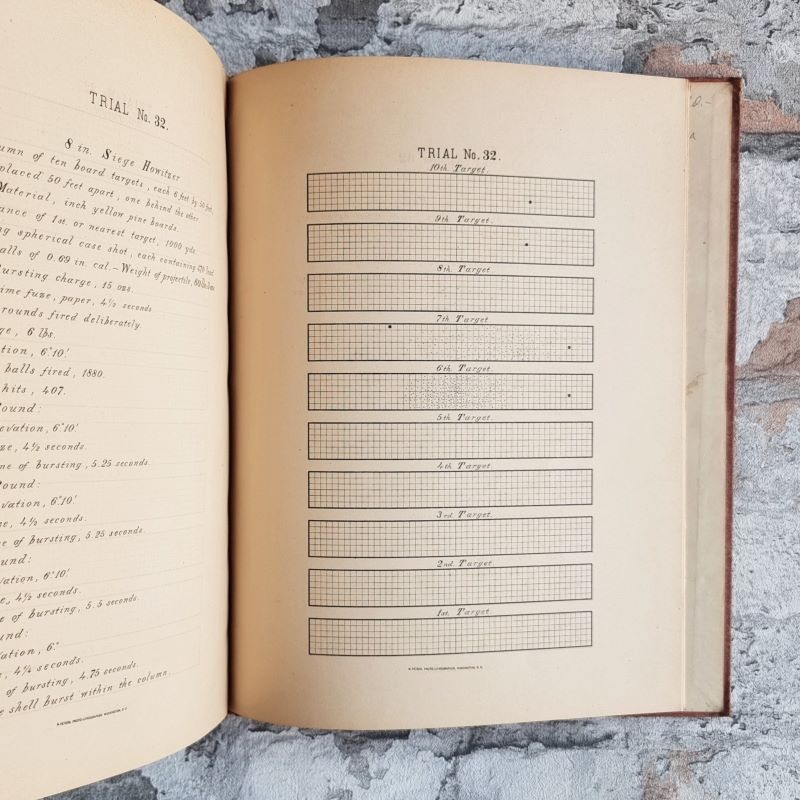 TRIAL No. 32.
8 in. Siege Howitzer
umn of ten board targets, each 6 feet by 50 feet,
placed 50 feet apart, one behind the other.
Material, inch yellow pine boards.
ance of 1st. or nearest target, 1000 yds.
ng spherical case shot, each containing 470 lead
alls of 0.69 in. cal.-Weight of projectile,
Bursting charge, 15 ozs.
ime fuze, paper, 4½ seconds
rounds fired deliberately.
ge, 6 lbs.
tion, 6°10'
balls fired, 1880.
hits, 407.
Round:
evation, 6°10'
ze, 4½ seconds.
me of bursting, 5.25 seconds.
Round:
vation, 6°10'
e, 4½ seconds.
e of bursting, 5.25 seconds.
und:
vation, 6°10'
e, 4½ seconds.
e of bursting, 5.5 seconds.
und:
vation, 6°
, 4¼ seconds.
of bursting, 4.75 seconds.
e shell burst within the column.
N. PETERS, PHOTO-LITHOGRAPHER, WASHINGTON, D. C.
TRIAL No. 32.
10th Target.
9th Target.
8th Target
7th Target
6th Target.
5th Target.
4th Target.
3rd. Target.
2nd. Target.
1st. Target.
N. PETERS, PHOTO-LITHOGRAPHER, WASHINGTON, D. C.